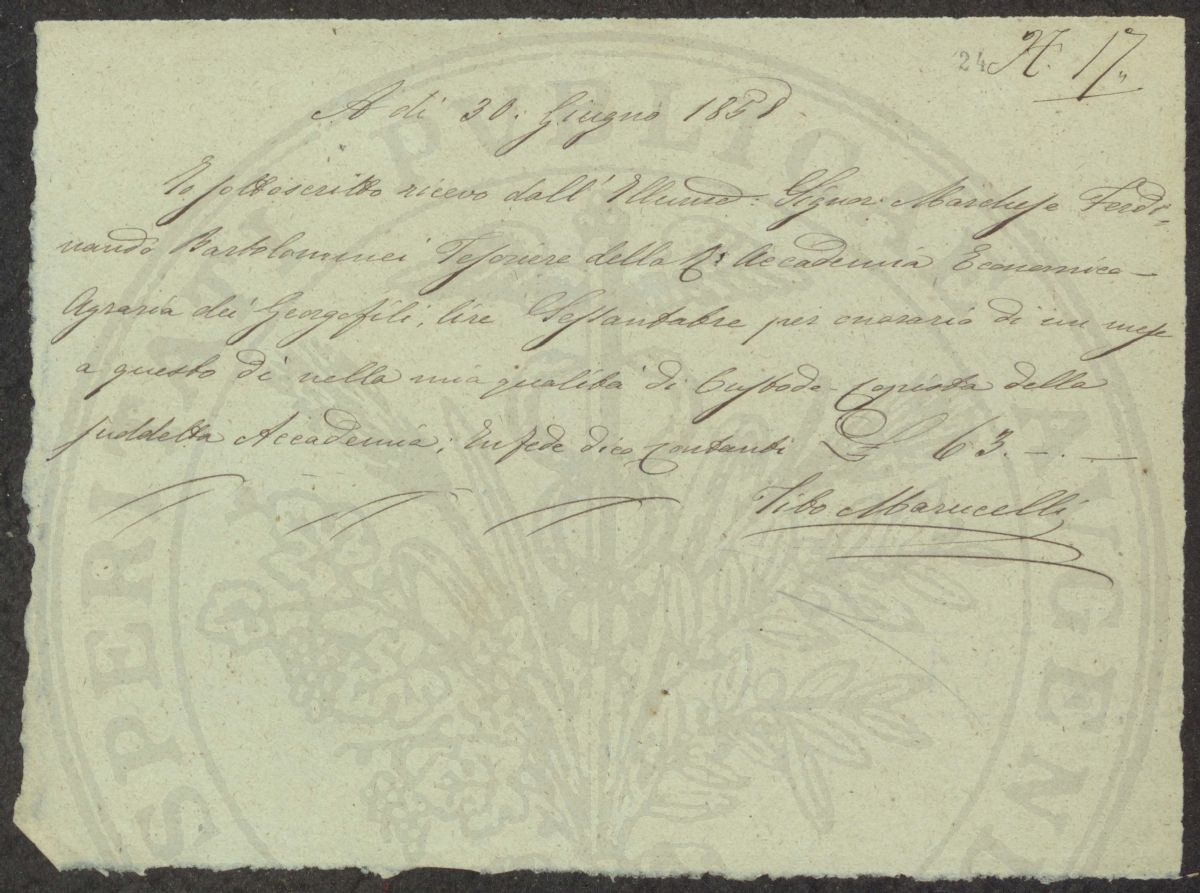 24 N. 17.
A dì 30. Giugno 1858
Io sottoscritto ricevo dall' Illumo: Signor: Marchese Ferdi-
nando Bartolommei Tesoriere della R: Accademia Economico-
Agraria dei Georgofili, lire Sessantatre per onorario di un mese
a questo dì nella mia qualità di Custode-Copista della
suddetta Accademia; In fede dico contanti £ 63. -. -
Vibo Marucelli
SPERITATI PVBLICAE AVGENDAE